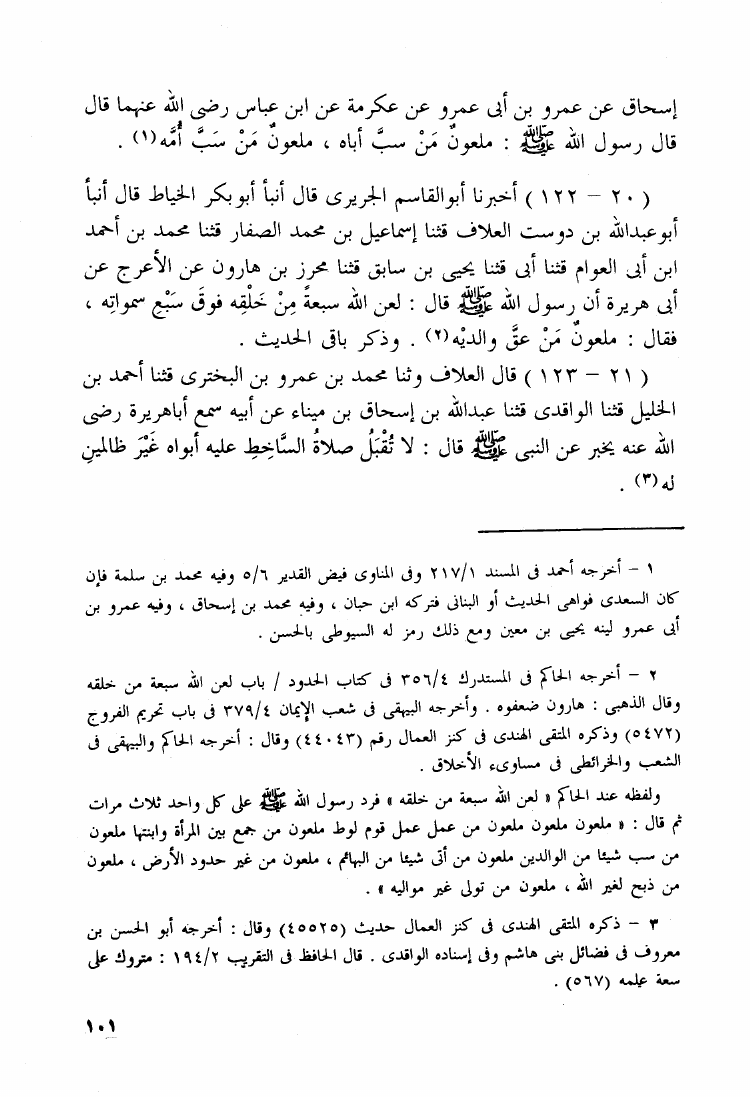 إسحاق عن عمرو بن أبى عمرو عن عكرمة عن ابن عباس رضى الله عنهما قال
قال رسول الله ﷺ : ملعونٌ مَنْ سبَّ أباه ، ملعونٌ مَنْ سَبَّ أُمَّه(١) .
( ٢٠ – ١٢٢ ) أخبرنا أبوالقاسم الجريرى قال أنبأ أبوبكر الخياط قال أنبأ
أبوعبدالله بن دوست العلاف قثنا إسماعيل بن محمد الصفار قثنا محمد بن أحمد
ابن أبى العوام قثنا أبى قثنا يحيى بن سابق قثنا محرز بن هارون عن الأعرج عن
أبى هريرة أن رسول الله ﷺ قال : لعن الله سبعةً مِنْ خَلْقِه فوقَ سَبْعِ سمواتِه ،
فقال : ملعونٌ مَنْ عقَّ والديْه(٢) . وذكر باقى الحديث .
( ٢١ – ١٢٣ ) قال العلاف وثنا محمد بن عمرو بن البخترى قثنا أحمد بن
الخليل قثنا الواقدى قثنا عبدالله بن إسحاق بن ميناء عن أبيه سمع أباهريرة رضى
الله عنه يخبر عن النبى ﷺ قال : لا تُقْبَلُ صلاةُ السَّاخِطِ عليه أبواه غَيْرَ ظالمينِ
له(٣) .
١ – أخرجه أحمد فى المسند ٢١٧/١ وفى المناوى فيض القدير ٥/٦ وفيه محمد بن سلمة فإن
كان السعدى فواهى الحديث أو البنانى فتركه ابن حبان ، وفيه محمد بن إسحاق ، وفيه عمرو بن
أبى عمرو لينه يحيى بن معين ومع ذلك رمز له السيوطى بالحسن .
٢ – أخرجه الحاكم فى المستدرك ٣٥٦/٤ فى كتاب الحدود / باب لعن الله سبعة من خلقه
وقال الذهبى : هارون ضعفوه . وأخرجه البيهقى فى شعب الإيمان ٣٧٩/٤ فى باب تحريم الفروج
(٥٤٧٢) وذكره المتقى الهندى فى كنز العمال رقم (٤٤٠٤٣) وقال : أخرجه الحاكم والبيهقى فى
الشعب والخرائطى فى مساوىء الأخلاق .
ولفظه عند الحاكم « لعن الله سبعة من خلقه » فرد رسول الله ﷺ على كل واحد ثلاث مرات
ثم قال : « ملعون ملعون ملعون من عمل عمل قوم لوط ملعون من جمع بين المرأة وابنتها ملعون
من سب شيئا من الوالدين ملعون من أتى شيئا من البهائم ، ملعون من غير حدود الأرض ، ملعون
من ذبح لغير الله ، ملعون من تولى غير مواليه » .
٣ – ذكره المتقى الهندى فى كنز العمال حديث (٤٥٥٢٥) وقال : أخرجه أبو الحسن بن
معروف فى فضائل بنى هاشم وفى إسناده الواقدى . قال الحافظ فى التقريب ١٩٤/٢ : متروك على
سعة علمه (٥٦٧) .
١٠١